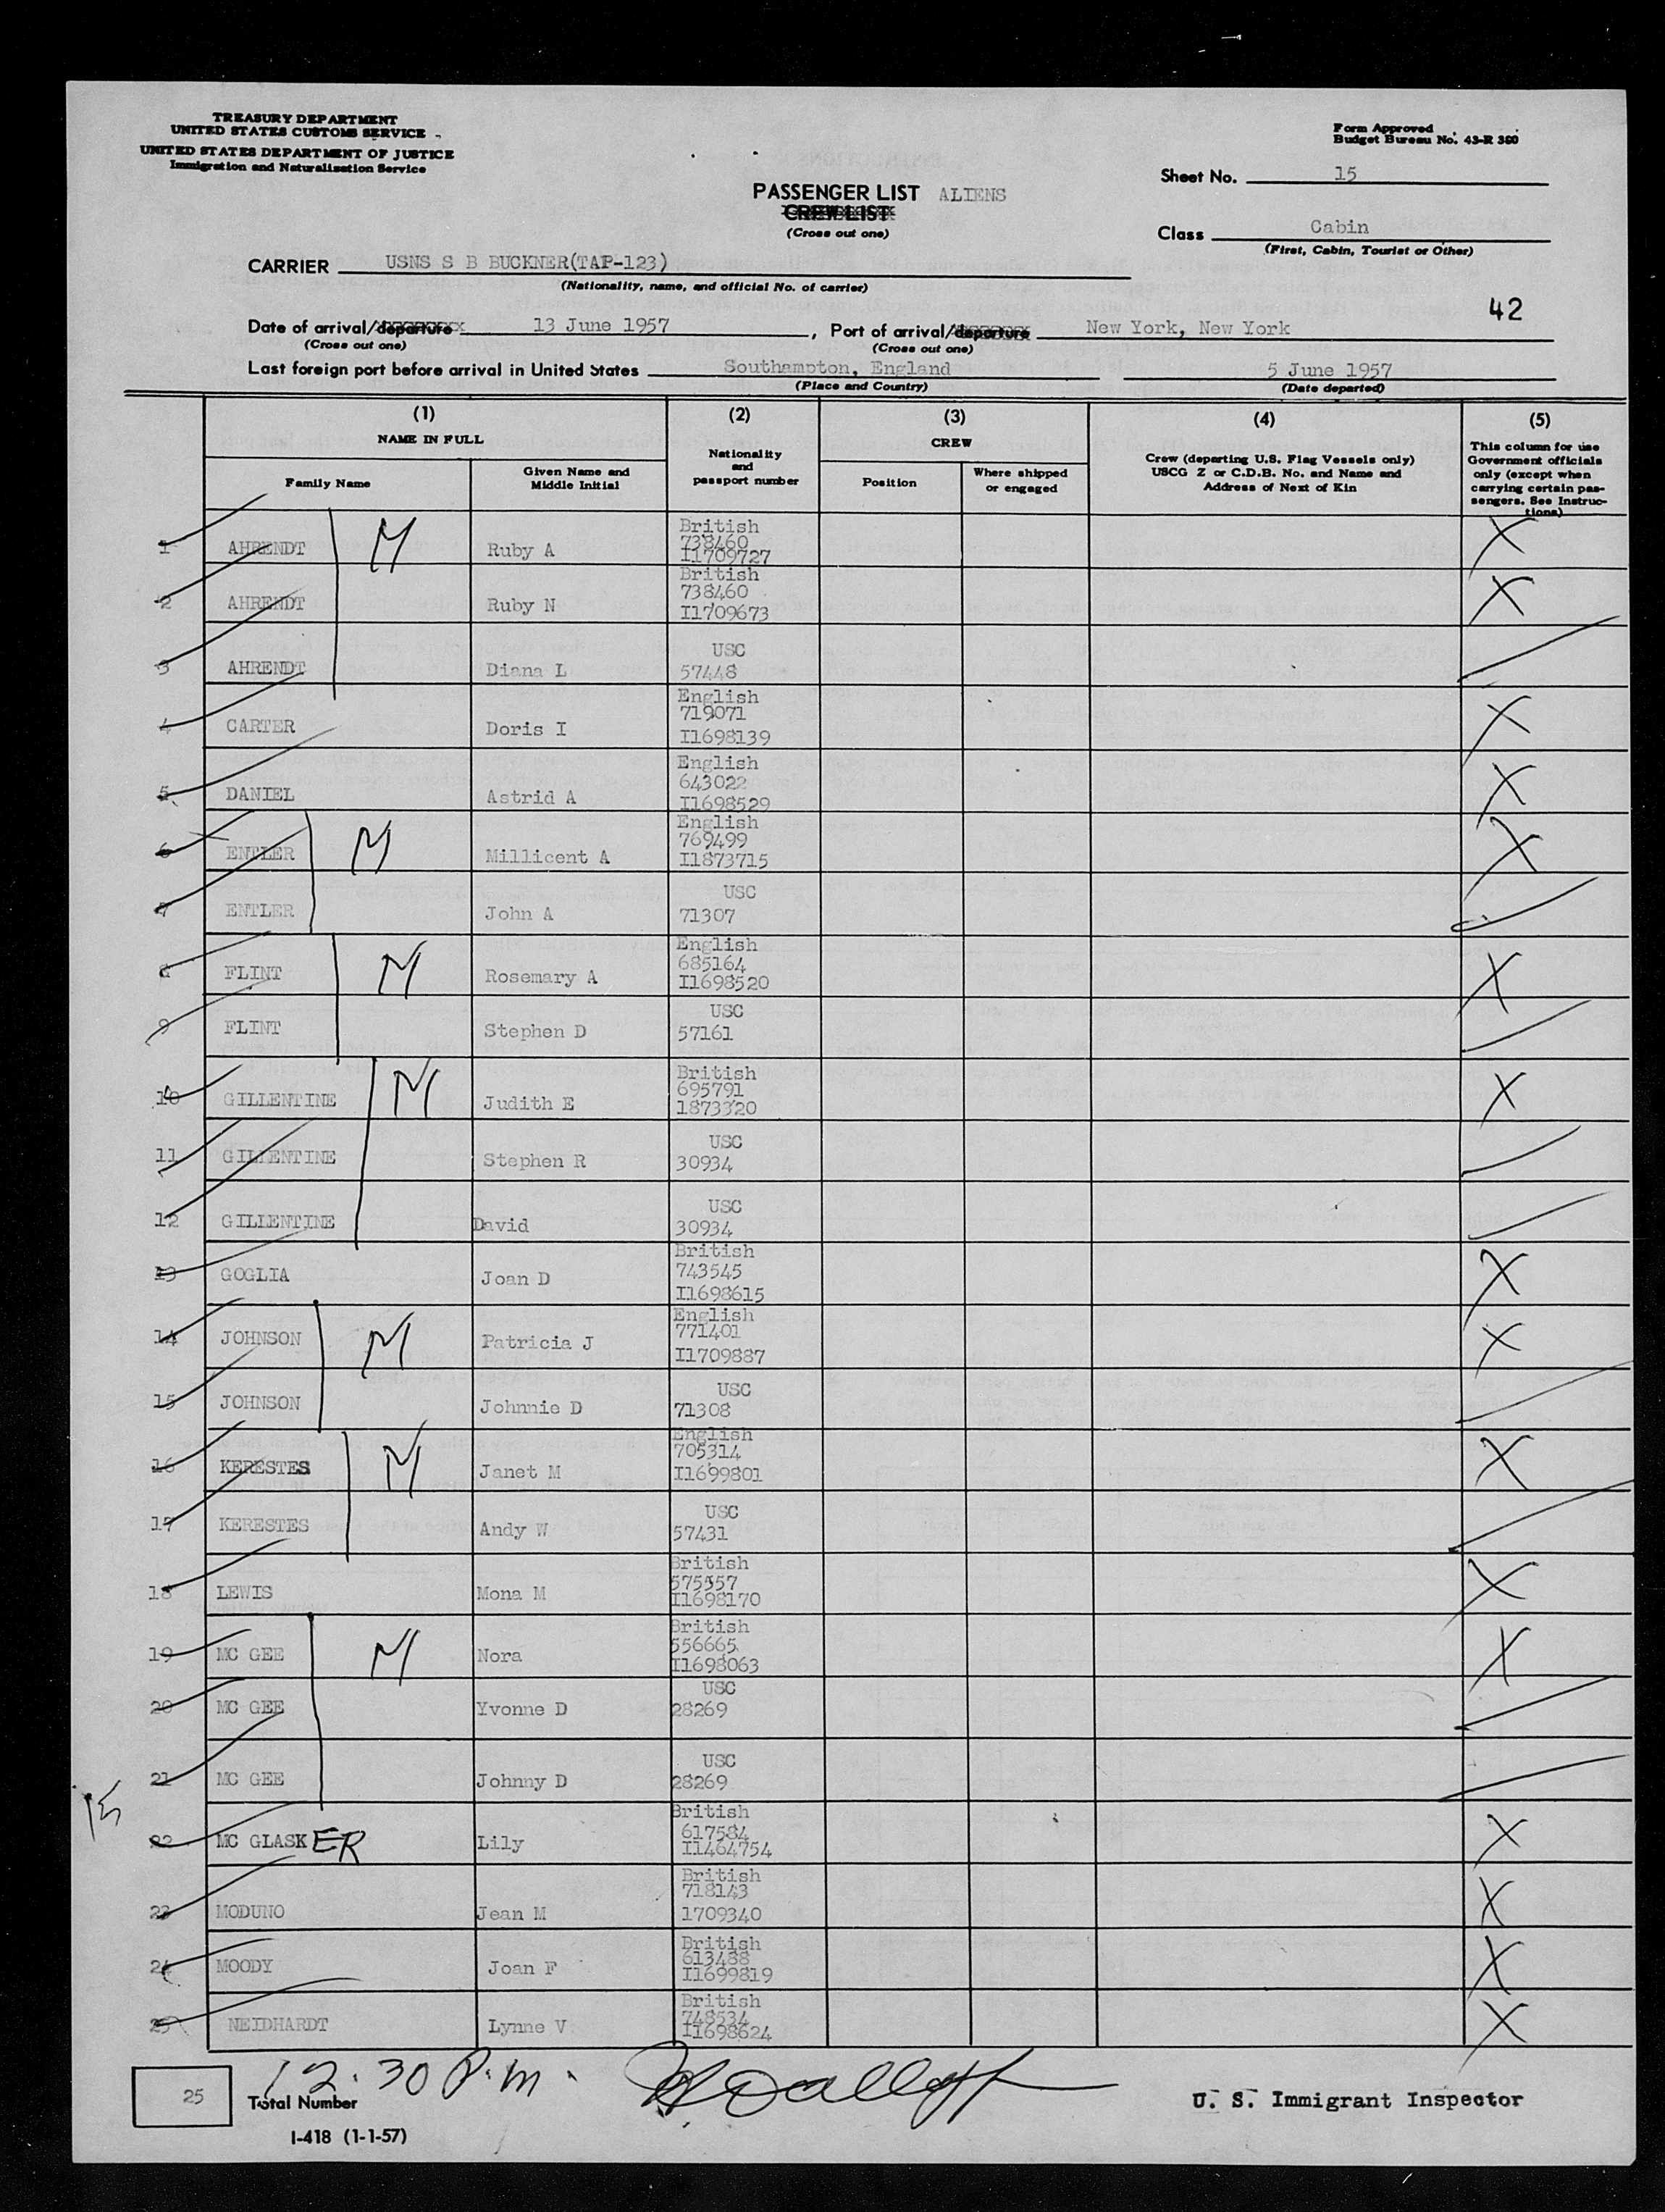 TREASURY DEPARTMENT
UNITED STATES CUSTOMS SERVICE
UNITED STATES DEPARTMENT OF JUSTICE
Immigration and Naturalization Service
Form Approved
Budget Bureau No. 43-R 360
Sheet No. 15
PASSENGER LIST ALIENS
CREW LIST
(Cross out one)
Class Cabin
(First, Cabin, Tourist or Other)
CARRIER USNS S B BUCKNER(TAP-123)
(Nationality, name, and official No. of carrier)
42
Date of arrival/departure 13 June 1957, Port of arrival/departure New York, New York
(Cross out one) (Cross out one)
Last foreign port before arrival in United States Southampton, England 5 June 1957
(Place and Country) (Date departed)
(1) (2) (3) (4) (5)
NAME IN FULL
Nationality and passport number
CREW
Crew (departing U.S. Flag Vessels only)
USCG Z or C.D.B. No. and Name and
Address of Next of Kin
This column for use
Government officials
only (except when
carrying certain pas-
sengers. See Instruc-
tions)
Family Name
Given Name and
Middle Initial
Position
Where shipped
or engaged
1 AHRENDT M Ruby A British 738460 I1709727 X
2 AHRENDT Ruby N British 738460 I1709673 X
3 AHRENDT Diana L USC 57448
4 CARTER Doris I English 719071 I1698139 X
5 DANIEL Astrid A English 643022 I1698529 X
6 ENTLER M Millicent A English 769499 I1873715 X
7 ENTLER John A USC 71307
8 FLINT M Rosemary A English 685164 I1698520 X
9 FLINT Stephen D USC 57161
10 GILLENTINE M Judith E British 695791 1873320 X
11 GILLENTINE Stephen R USC 30934
12 GILLENTINE David USC 30934
13 GOGLIA Joan D British 743545 I1698615 X
14 JOHNSON M Patricia J English 771401 I1709887 X
15 JOHNSON Johnnie D USC 71308
16 KERESTES M Janet M English 705314 I1699801 X
17 KERESTES Andy W USC 57431
18 LEWIS Mona M British 575557 I1698170 X
19 MC GEE M Nora British 556665 I1698063 X
20 MC GEE Yvonne D USC 28269
21 MC GEE Johnny D USC 28269
15
22 MC GLASKER Lily British 617584 I1464754 X
23 MODUNO Jean M British 718143 1709340 X
24 MOODY Joan F British 613488 I1699819 X
25 NEIDHARDT Lynne V British 748534 I1698624 X
12.30 P.m.
25 Total Number
U. S. Immigrant Inspector
I-418 (1-1-57)